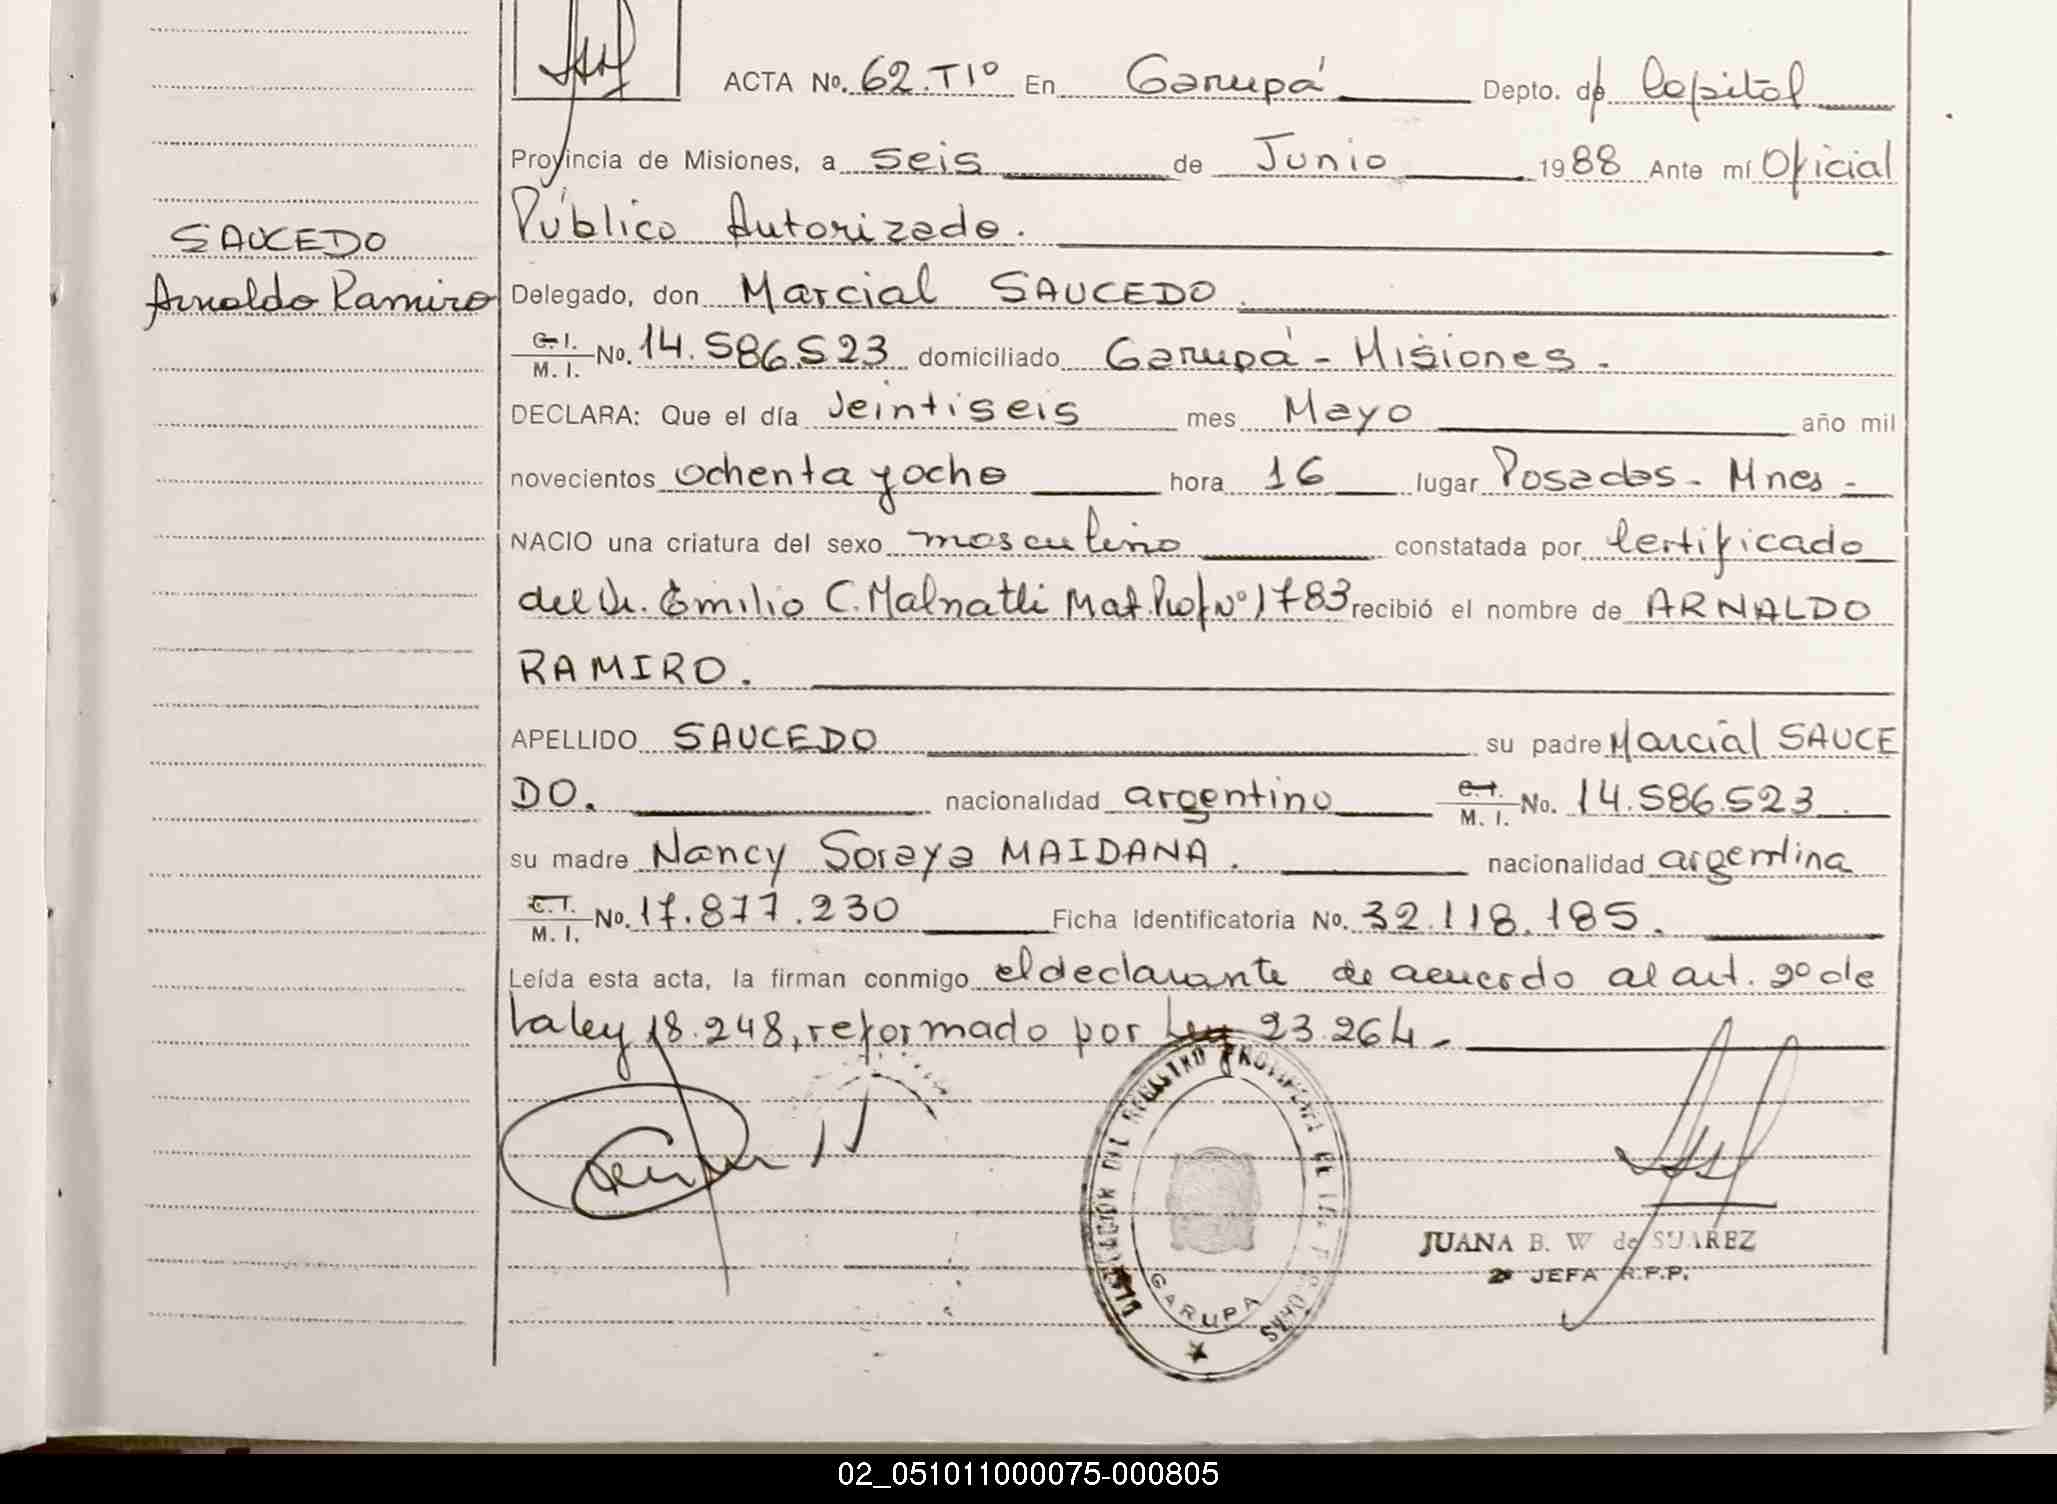 ACTA No. 62.TIº En Garupá Depto. de Capital
Provincia de Misiones, a seis de Junio 1988 Ante mí Oficial
Público Autorizado.
SAUCEDO
Arnaldo Ramiro
Delegado, don Marcial SAUCEDO.
C. I. M. I. No. 14.586.523 domiciliado Garupá - Misiones.
DECLARA: Que el día veintiseis mes Mayo año mil
novecientos ochenta y ocho hora 16 lugar Posadas - Mnes -
NACIO una criatura del sexo masculino constatada por Certificado
del Dr. Emilio C. Malnatti Mat. Prof Nº 1783 recibió el nombre de ARNALDO
RAMIRO.
APELLIDO SAUCEDO su padre Marcial SAUCE
DO. nacionalidad argentino C. I. M. I. No. 14.586.523.
su madre Nancy Soraya MAIDANA. nacionalidad argentina
C. I. M. I. No. 17.877.230 Ficha Identificatoria No. 32.118.185.
Leída esta acta, la firman conmigo el declarante de acuerdo al art. 2º de
la ley 18.248, reformado por Ley 23.264.-
GARUPA
JUANA B. W de SUAREZ
2ª JEFA R.P.P.
02_051011000075-000805